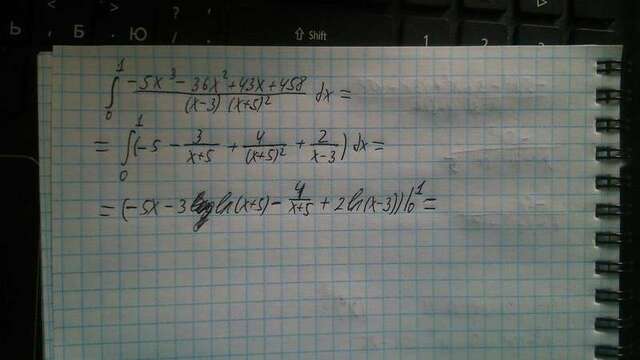 < > ? : ⇧ Shift
Ь Б Ю . 1 2 3
∫₀¹ (-5x³ - 36x² + 43x + 458)/((x-3)(x+5)²) dx =
= ∫₀¹ (-5 - 3/(x+5) + 4/(x+5)² + 2/(x-3)) dx =
= (-5x - 3 ln(x+5) - 4/(x+5) + 2 ln(x-3))|₀¹ =